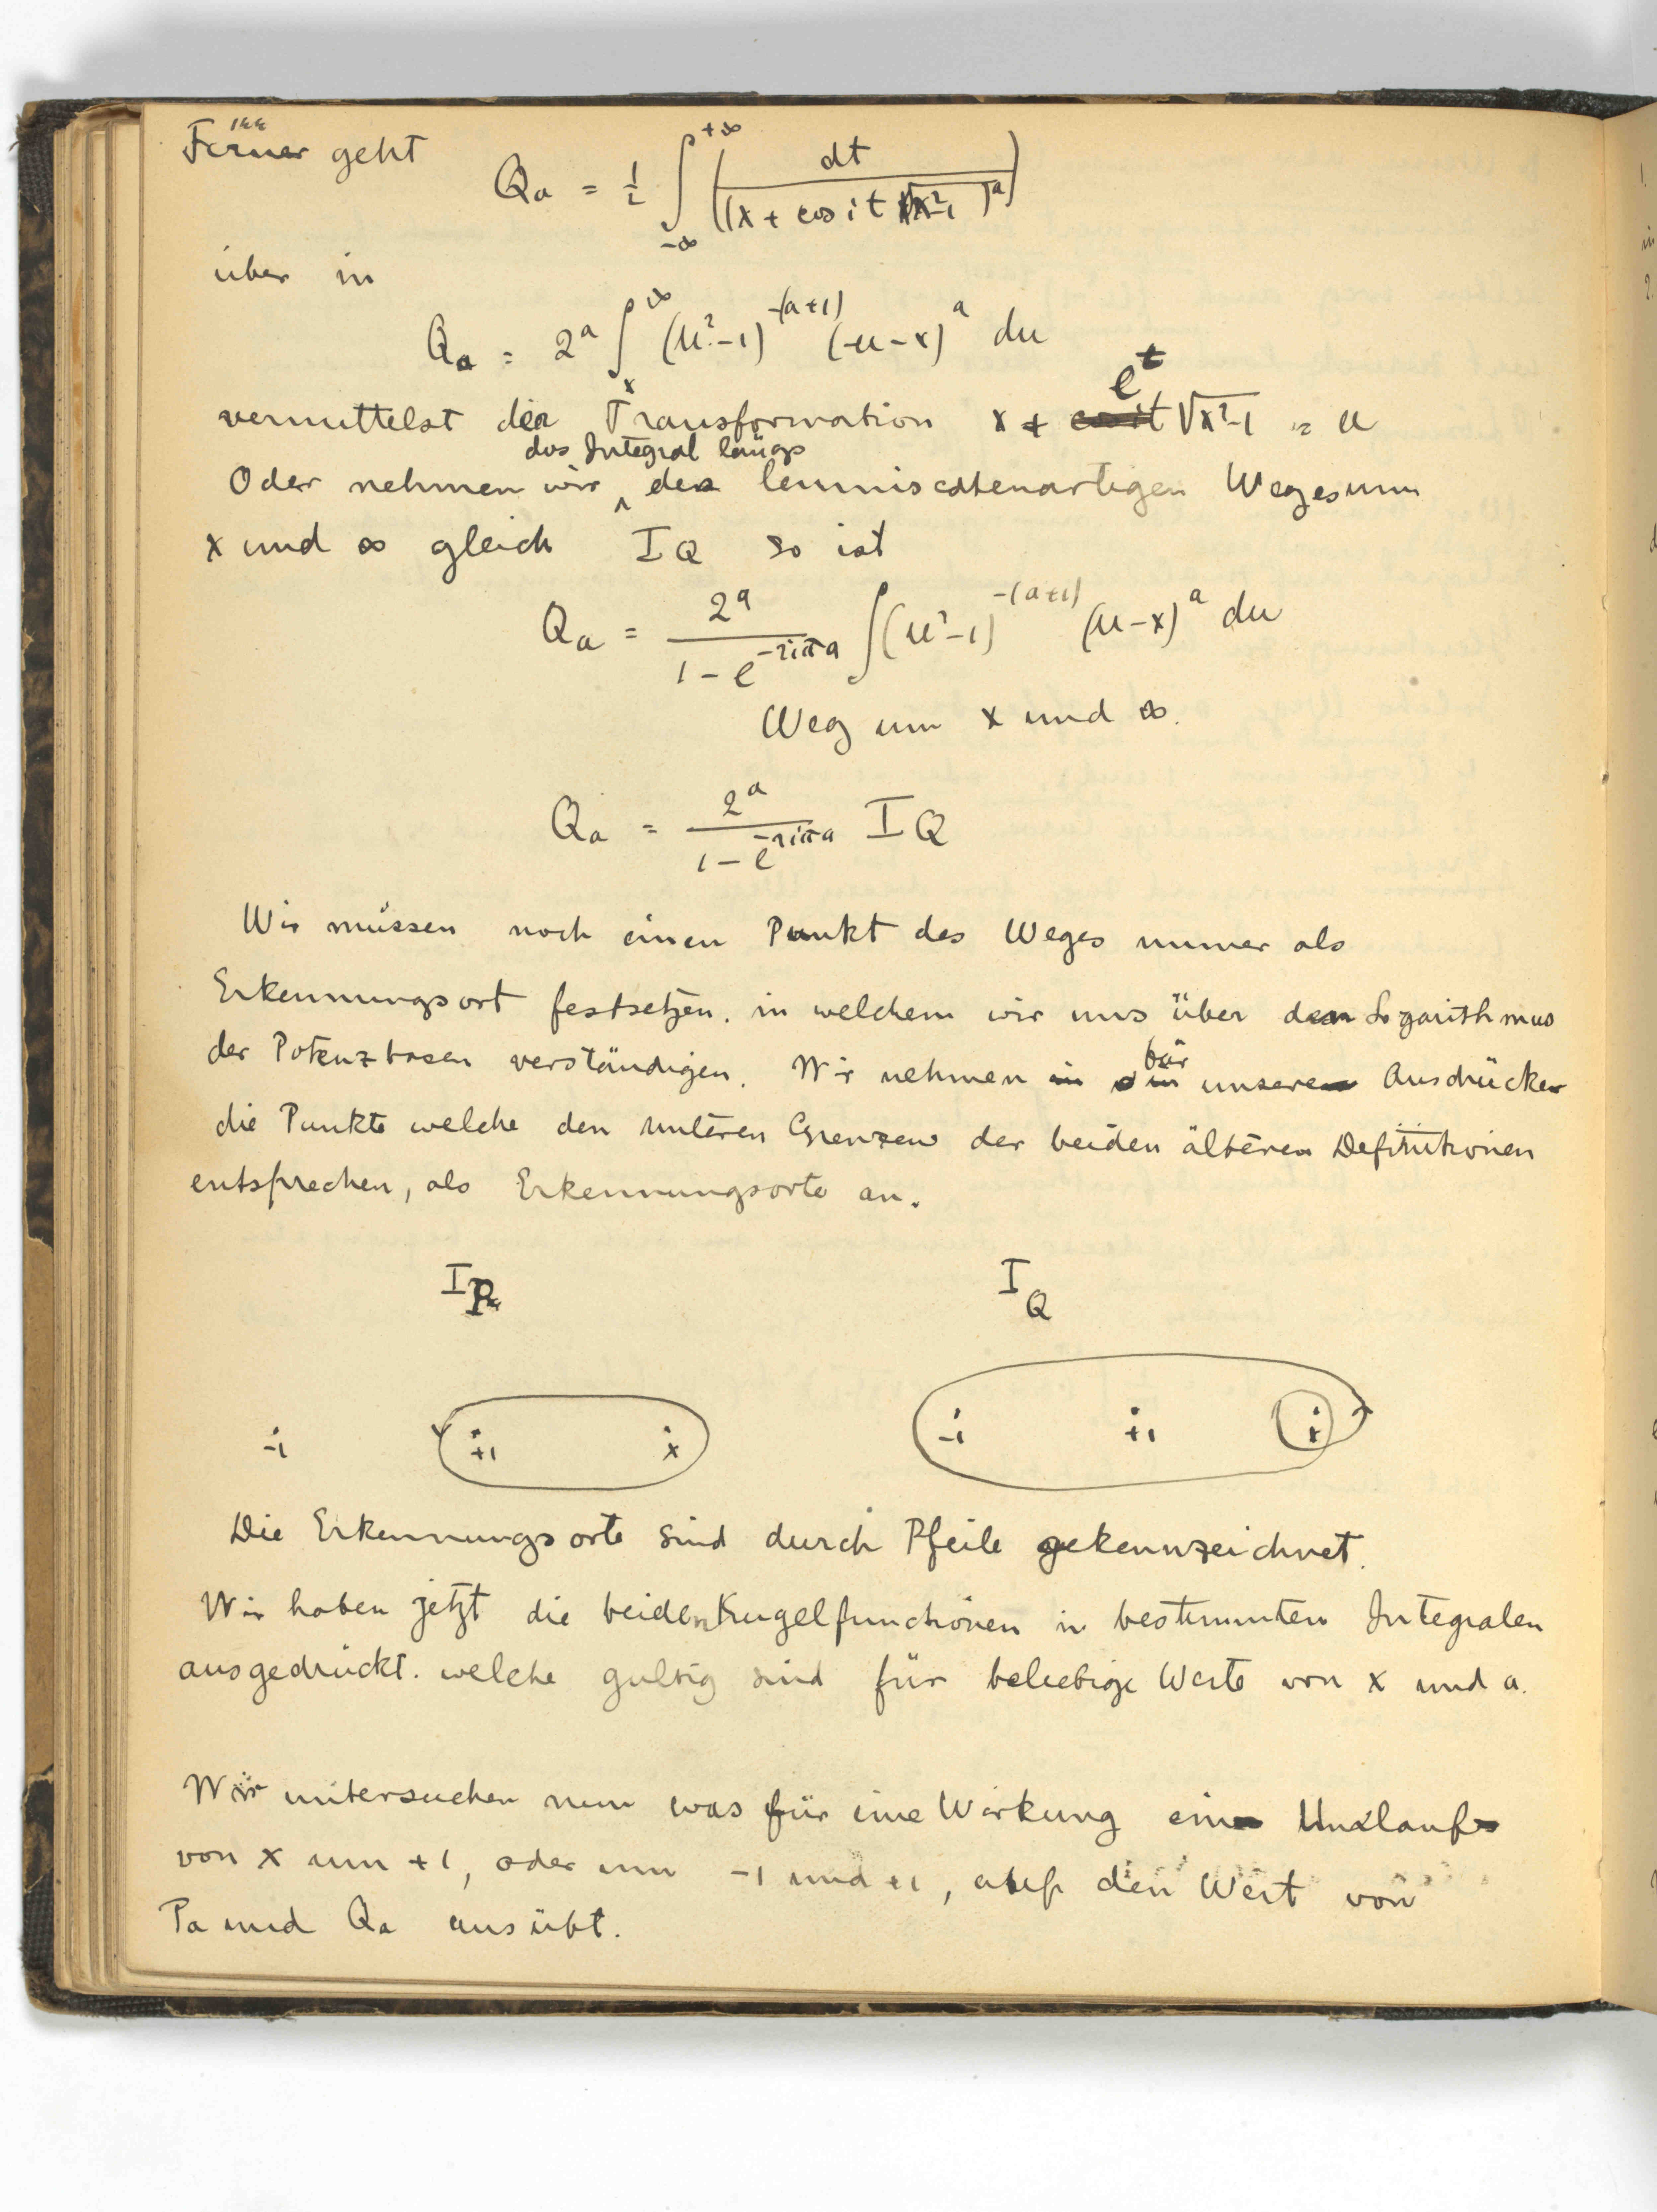 Ferner geht
Qa = 1/2 ∫_{-∞}^{+∞} (dt / (x + cos i t √x²-1)^a)
über in
Qa = 2^a ∫_x^∞ (u²-1)^{-(a+1)} (u-x)^a du
vermittelst der Transformation x + e^t √x²-1 = u
das Integral längs
Oder nehmen wir des lemniscatenartigen Weges um
x und ∞ gleich I Q so ist
Qa = 2^a / (1 - e^{-2iπa}) ∫ (u²-1)^{-(a+1)} (u-x)^a du
Weg um x und ∞.
Qa = 2^a / (1 - e^{-2iπa}) I Q
Wir müssen noch einen Punkt des Weges immer als
Erkennungsort festsetzen, in welchem wir uns über den Logarithmus
der Potenzbasen verständigen. Wir nehmen für unsere Ausdrücke
die Punkte welche den unteren Grenzen der beiden älteren Definitionen
entsprechen, als Erkennungsorte an.
I_P I_Q
-1 +1 x -1 +1 x
Die Erkennungsorte sind durch Pfeile gekennzeichnet.
Wir haben jetzt die beiden Kugelfunctionen in bestimmten Integralen
ausgedrückt. welche gultig sind für beliebige Werte von x und a.
Wir untersuchen nun was für eine Wirkung ein Umlauf
von x um +1, oder um -1 und +1, auf den Wert von
Pa und Qa ausübt.